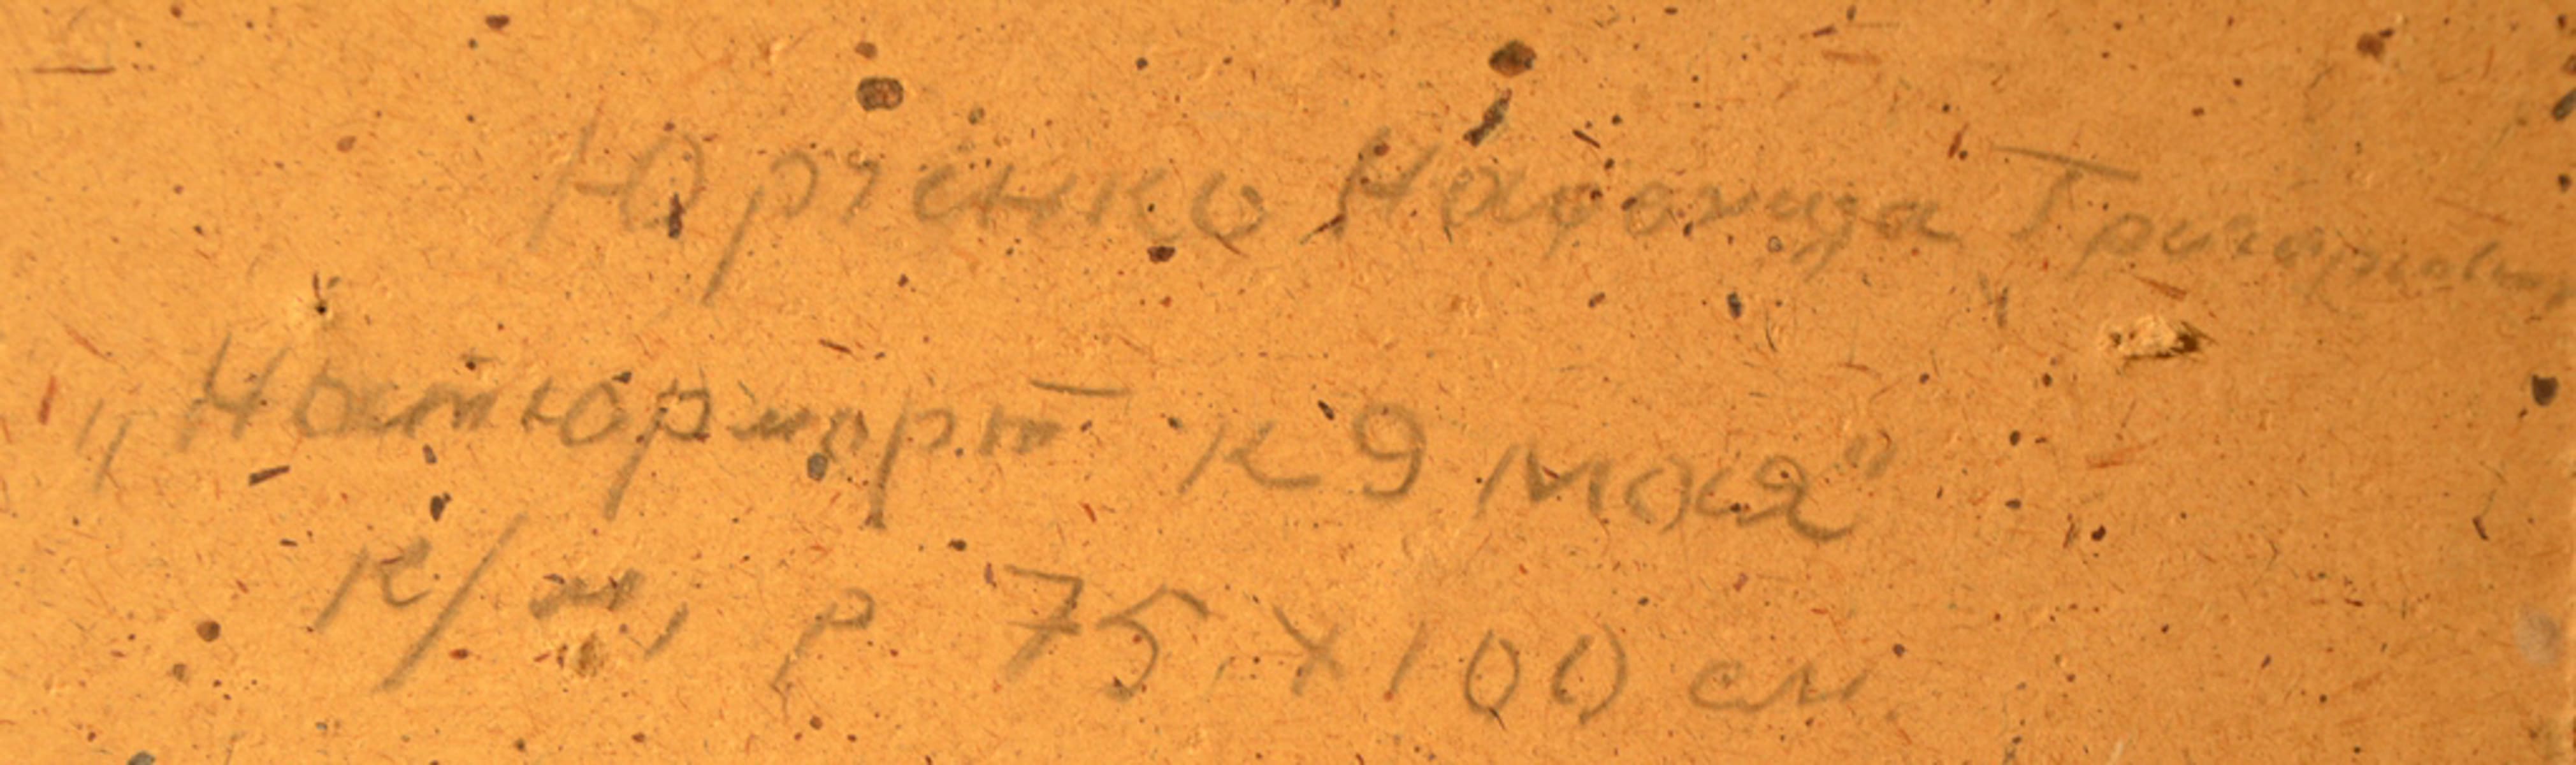 Юрченко Надежда Григорьевн
„Натюрморт к 9 мая"
к/м, р 75 х 100 см